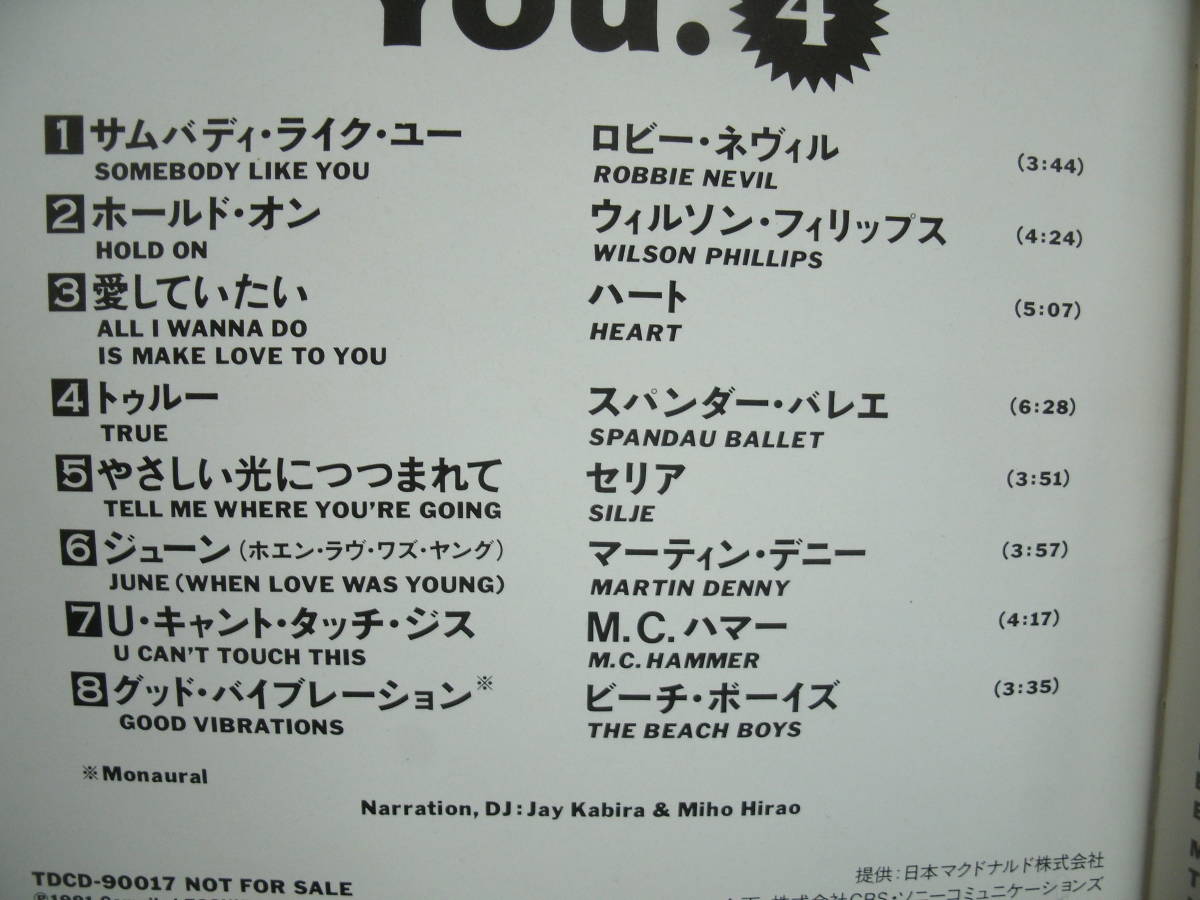 You. 4
1 サムバディ・ライク・ユー ロビー・ネヴィル (3:44)
SOMEBODY LIKE YOU ROBBIE NEVIL
2 ホールド・オン ウィルソン・フィリップス (4:24)
HOLD ON WILSON PHILLIPS
3 愛していたい ハート (5:07)
ALL I WANNA DO HEART
IS MAKE LOVE TO YOU
4 トゥルー スパンダー・バレエ (6:28)
TRUE SPANDAU BALLET
5 やさしい光につつまれて セリア (3:51)
TELL ME WHERE YOU'RE GOING SILJE
6 ジューン(ホエン・ラヴ・ワズ・ヤング) マーティン・デニー (3:57)
JUNE (WHEN LOVE WAS YOUNG) MARTIN DENNY
7 U・キャント・タッチ・ジス M.C.ハマー (4:17)
U CAN'T TOUCH THIS M.C.HAMMER
8 グッド・バイブレーション※ ビーチ・ボーイズ (3:35)
GOOD VIBRATIONS THE BEACH BOYS
※Monaural
Narration, DJ:Jay Kabira & Miho Hirao
TDCD-90017 NOT FOR SALE 提供:日本マクドナルド株式会社
株式会社CBS・ソニーコミュニケーションズ